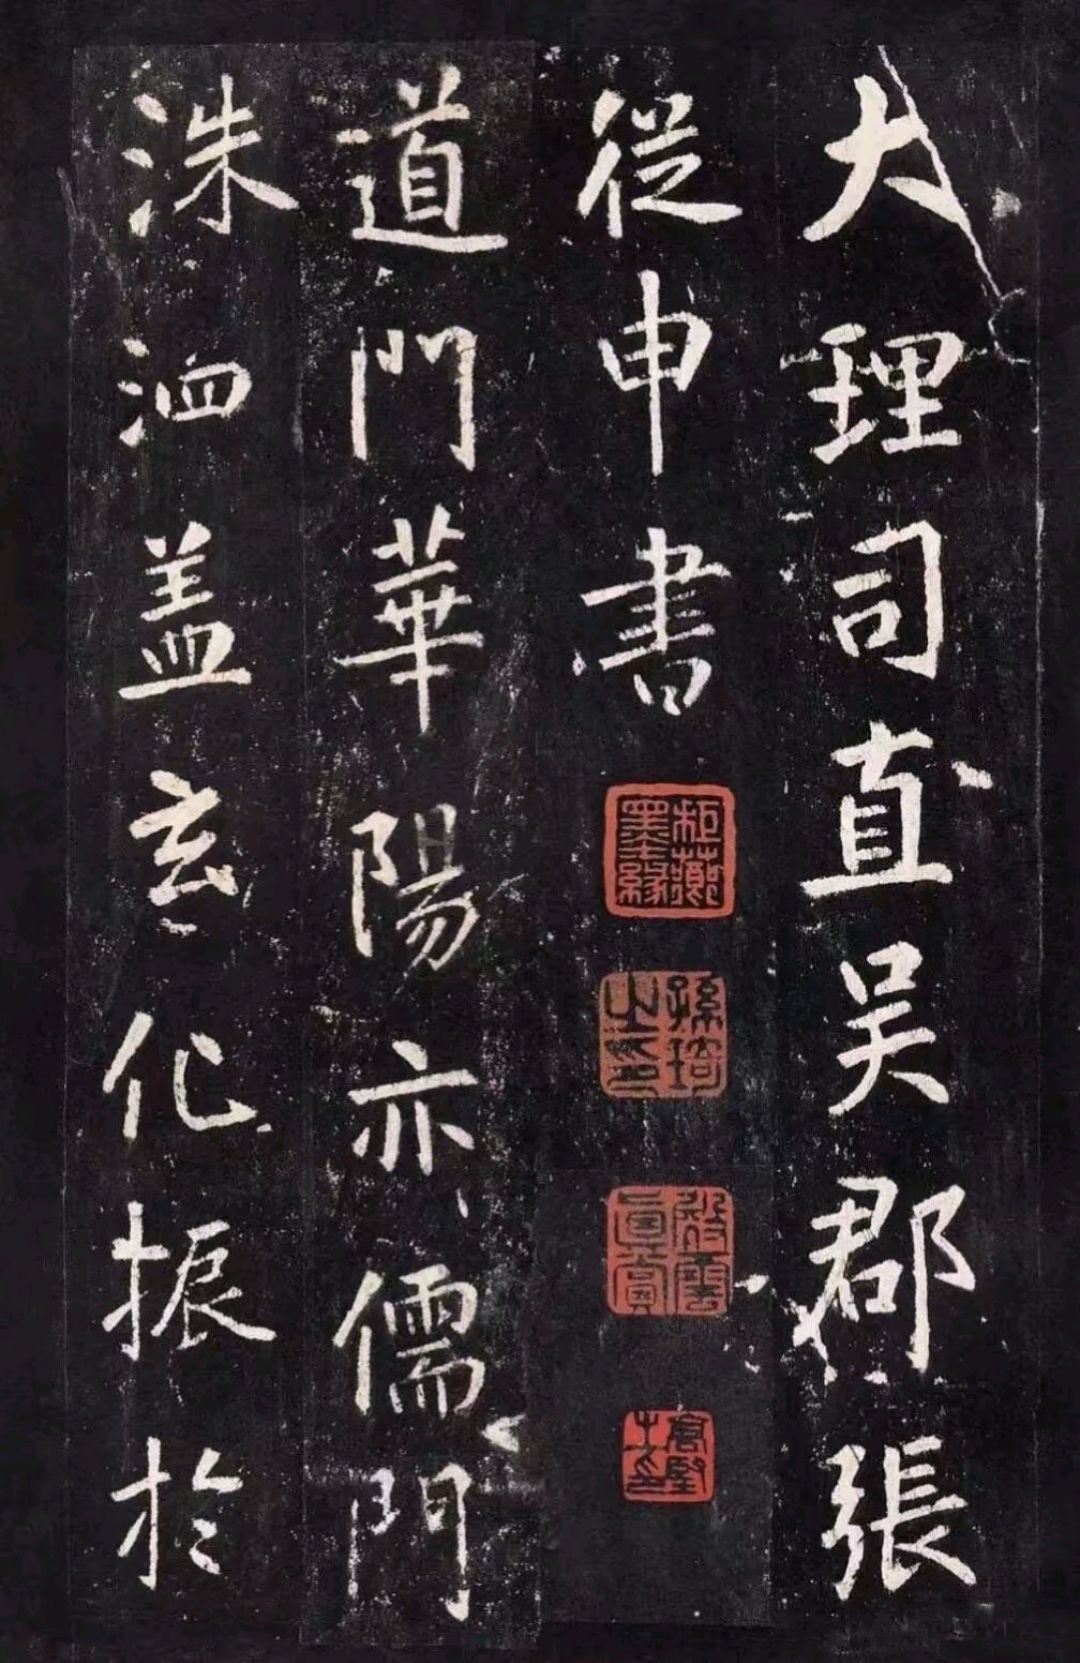 大理司直吴郡張
從申書
道門華陽亦儒門
洙泗盖玄化振於
孫琦之印